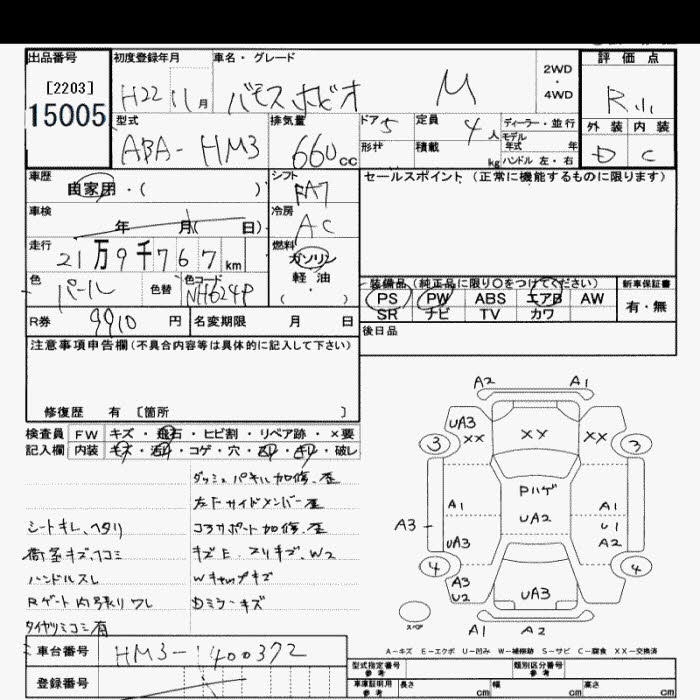 出品番号 初度登録年月 車名・グレード 評価点
[2203]
15005
H22 11月 バモスホビオ M
2WD
・
4WD
R 小
外装 内装
D C
型式 排気量 ドア 定員 ディーラー・並行
ABA-HM3 660cc 5 4人
モデル
年式 年
形状 積載 kg ハンドル 左・右
車歴 シフト セールスポイント(正常に機能するものに限ります)
自家用・( ) FA7
車検 冷房
年 月( 日) AC
走行 燃料
21万9千767km ガソリン
軽油
( )
色 色替 色コード
パール NH624P
装備品(純正品に限り〇をつけてください) 新車保証書
PS PW ABS エアB AW 有・無
SR ナビ TV カワ
R券 9910円 名変期限 月 日 後日品
注意事項申告欄(不具合内容等は具体的に記入して下さい)
修復歴 有 〔箇所 〕
検査員 FW キズ・飛石・ヒビ割・リペア跡・×要
記入欄 内装 キズ・汚れ・コゲ・穴・・キレ・破レ
A2 A1
UA3 XX XX XX
3 3
ダッシュパネル加修、歪
左Fサイドメンバー歪
Pハゲ
シートキレ、ヘタリ コアサポート加修、歪
A1 UA2 A1
A3 U1
キズE、スリキズ、W2
UA3 A2
ハンドルスレ Wキャップキズ
4 4
Rゲート内張りワレ Dミラーキズ
A3
U2 UA3
スペア
A1 A2
A-キズ E-エクボ U-凹み W-補修跡 S-サビ C-腐食 XX-交換済
車台番号 HM3-1400372
型式指定番号 参考 類別区分番号 参考
登録番号 車庫証明用 参考 長さ cm 幅 cm 高さ cm